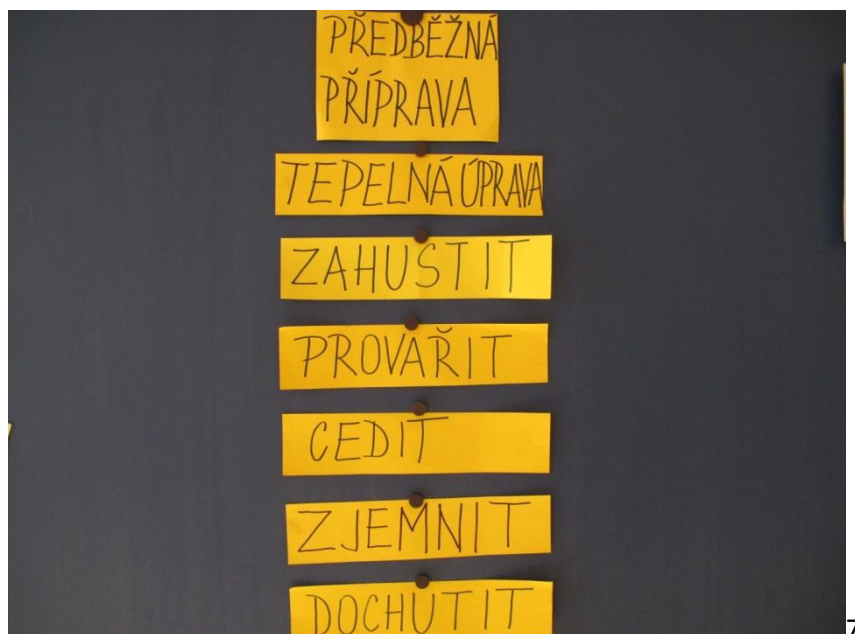 PŘEDBĚŽNÁ
PŘÍPRAVA
TEPELNÁ ÚPRAVA
ZAHUSTIT
PROVAŘIT
CEDIT
ZJEMNIT
DOCHUTIT
7